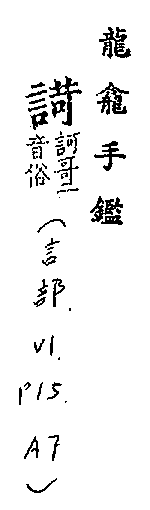 龍龕手鑑
訶哥二
音俗
(言部.
V1.
P15.
A7)